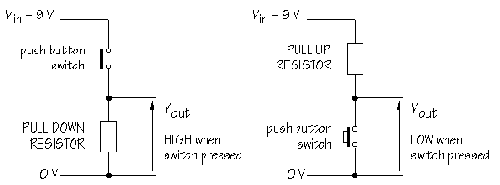 Vin = 9 V
push button
switch
Vout
PULL DOWN
RESISTOR
HIGH when
switch pressed
0 V
Vin = 9 V
PULL UP
RESISTOR
Vout
push button
switch
LOW when
switch pressed
0 V